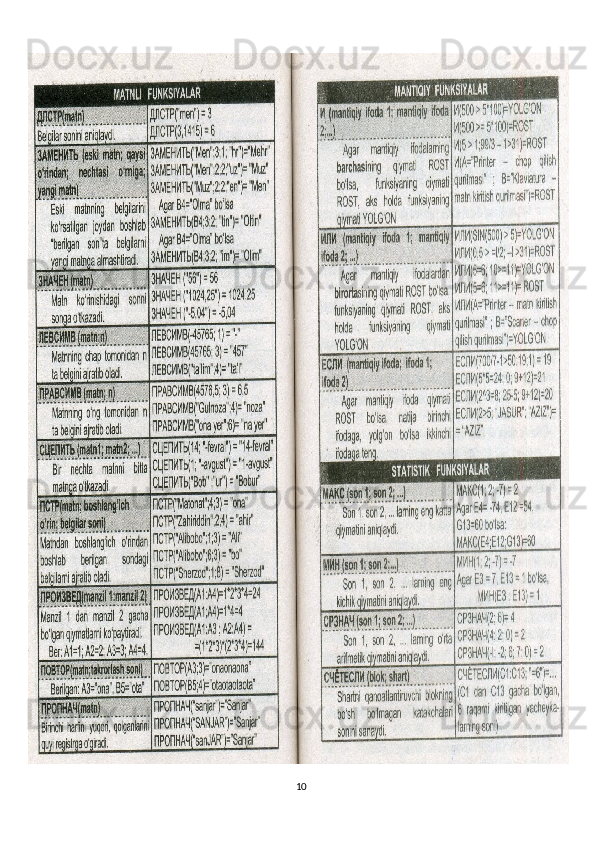 MATNLI FUNKSIYALAR
ДЛСТР(matn)
Belgilar sonini aniqlaydi.
ДЛСТР("men") = 3
ДЛСТР(3,1415) = 6
ЗАМЕНИТЬ (eski matn; qaysi
o'rindan; nechtasi o'rniga;
yangi matn)
Eski matnning belgilarini
ko'rsatilgan joydan boshlab
"berilgan son"ta belgilarni
yangi matnga almashtiradi.
ЗАМЕНИТЬ("Men";3;1; "hr")="Mehr"
ЗАМЕНИТЬ("Men";2;2;"uz")= "Muz"
ЗАМЕНИТЬ("Muz";2;2;"en")= "Men"
Agar B4="Olma" bo'lsa
ЗАМЕНИТЬ(B4;3;2; "tin")= "Oltin"
Agar B4="Olma" bo'lsa
ЗАМЕНИТЬ(B4;3;2; "im")= "Olim"
ЗНАЧЕН (matn)
Matn ko'rinishidagi sonni
songa o'tkazadi.
ЗНАЧЕН ("56") = 56
ЗНАЧЕН ("1024,25") = 1024,25
ЗНАЧЕН ("-5,04") = -5,04
ЛЕВСИМВ (matn;n)
Matnning chap tomonidan n
ta belgini ajratib oladi.
ЛЕВСИМВ(-45765; 1) = "-"
ЛЕВСИМВ(45765; 3) = "457"
ЛЕВСИМВ("ta'lim";4)= "ta'l"
ПРАВСИМВ (matn; n)
Matnning o'ng tomonidan n
ta belgini ajratib oladi.
ПРАВСИМВ(4576,5; 3) = 6,5
ПРАВСИМВ("Gulnoza";4)= "noza"
ПРАВСИМВ("ona yer";6)= "na yer"
СЦЕПИТЬ (matn1; matn2; ...)
Bir nechta matnni bitta
matnga o'tkazadi
СЦЕПИТЬ(14; "-fevral") = "14-fevral"
СЦЕПИТЬ(1; "-avgust") = "1-avgust"
СЦЕПИТЬ("Bob" ;"ur") = "Bobur"
ПСТР(matn; boshlang'ich
o'rin; belgilar soni)
Matndan boshlang'ich o'rindan
boshlab berilgan sondagi
belgilarni ajratib oladi.
ПСТР("Matonat";4;3) = "ona"
ПСТР("Zahiriddin";2;4) = "ahir"
ПСТР("Alibobo";1;3) = "Ali"
ПСТР("Alibobo";6;3) = "bo"
ПСТР("Sherzod";1;8) = "Sherzod"
ПРОИЗВЕД(manzil 1:manzil 2)
Manzil 1 dan manzil 2 gacha
bo'lgan qiymatlarni ko'paytiradi.
Ber: A1=1; A2=2; A3=3; A4=4.
ПРОИЗВЕД(A1:A4)=1*2*3*4=24
ПРОИЗВЕД(A1;A4)=1*4=4
ПРОИЗВЕД(A1:A3 ; A2:A4) =
=(1*2*3)*(2*3*4)=144
ПОВТОР(matn;takrorlash soni)
Berilgan: A3="ona", B5="ota"
ПОВТОР(A3;3)="onaonaona"
ПОВТОР(B5;4)="otaotaotaota"
ПРОПНАЧ(matn)
Birinchi harfni yuqori, qolganlarini
quyi registrga o'giradi.
ПРОПНАЧ("sanjar")="Sanjar"
ПРОПНАЧ("SANJAR")="Sanjar"
ПРОПНАЧ("sanJAR")="Sanjar"
MANTIQIY FUNKSIYALAR
И (mantiqiy ifoda 1; mantiqiy ifoda
2;...)
Agar mantiqiy ifodalarning
barchasining qiymati ROST
bo'lsa, funksiyaning qiymati
ROST, aks holda funksiyaning
qiymati YOLG'ON
И(500 > 5*100)=YOLG'ON
И(500 >= 5*100)=ROST
И(5 > 1;99/3 – 1>31)=ROST
И(A="Printer – chop qilish
qurilmasi" ; B="Klaviatura –
matn kiritish qurilmasi")=ROST
ИЛИ (mantiqiy ifoda 1; mantiqiy
ifoda 2; ...)
Agar mantiqiy ifodalardan
birortasining qiymati ROST bo'lsa,
funksiyaning qiymati ROST, aks
holda funksiyaning qiymati
YOLG'ON
ИЛИ(SIN(500) > 5)=YOLG'ON
ИЛИ(5=6; 10>=11)=YOLG'ON
ИЛИ(5=6; 11>=11)= ROST
ИЛИ(A="Printer – matn kiritish
qurilmasi" ; B="Scaner – chop
qilish qurilmasi")=YOLG'ON
ЕСЛИ (mantiqiy ifoda; ifoda 1;
ifoda 2)
Agar mantiqiy ifoda qiymati
ROST bo'lsa, natija birinchi
ifodaga, yolg'on bo'lsa ikkinchi
ifodaga teng.
ЕСЛИ(700/7-1>50;19;1) = 19
ЕСЛИ(5*5=24; 0; 9+12)=21
ЕСЛИ(2^3=8; 25-5; 9+12)=20
ЕСЛИ(2>5; "JASUR"; "AZIZ")=
= "AZIZ"
STATISTIK FUNKSIYALAR
МАКС (son 1; son 2; ...)
Son 1, son 2, ... larning eng katta
qiymatini aniqlaydi.
МАКС(1; 2; -7) = 2
Agar E4= -74, E12 =54,
G13=60 bo'lsa:
МАКС(E4;E12;G13)=60
МИН (son 1; son 2;...)
Son 1, son 2, ... larning eng
kichik qiymatini aniqlaydi.
МИН(1; 2; -7) = -7
Agar E3 = 7, E13 = 1 bo'lsa,
МИН(E3 : E13) = 1
СРЗНАЧ (son 1; son 2; ...)
Son 1, son 2, ... larning o'rta
arifmetik qiymatini aniqlaydi.
СРЗНАЧ(2; 6)= 4
СРЗНАЧ(4; 2; 0) = 2
СЧЁТЕСЛИ (blok; shart)
Shartni qanoatlantiruvchi blokning
bo'sh bo'lmagan katakchalari
sonini sanaydi.
СЧЁТЕСЛИ(C1:C13; "=6")=...
(C1 dan C13 gacha bo'lgan,
6 raqami kiritilgan yacheyka-
larning soni)
10